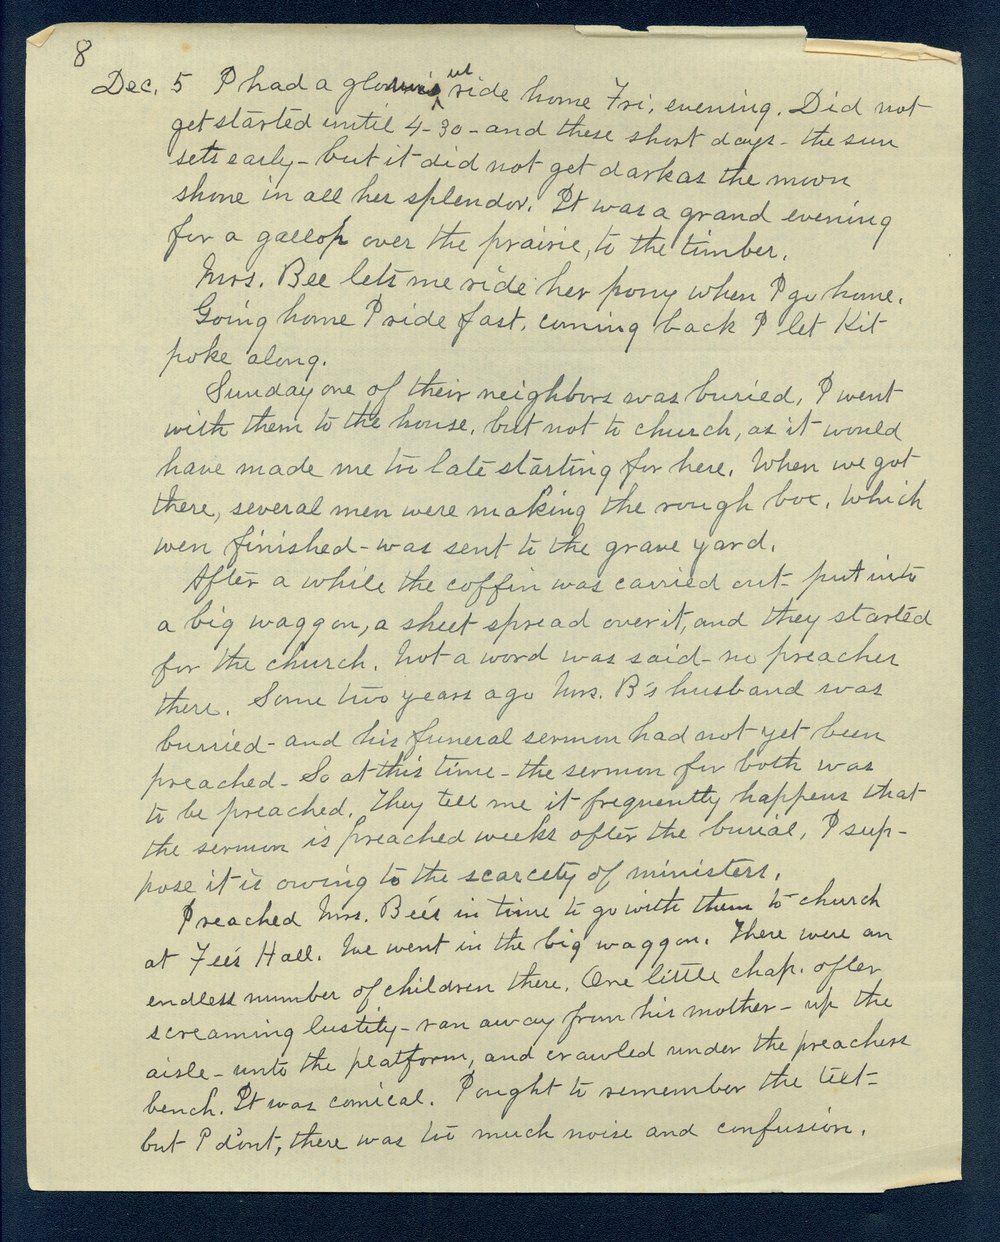 8
Dec. 5 I had a glorious ride home Fri, evening. Did not
get started until 4-30 - and these short days - the sun
sets early - but it did not get dark as the moon
shone in all her splendor. It was a grand evening
for a gallop over the prairie, to the timber.
Mrs. Bee lets me ride her pony when I go home.
Going home I ride fast, coming back I let Kit
poke along.
Sunday one of their neighbors was buried, I went
with them to the house, but not to church, as it would
have made me too late starting for here. When we got
there, several men were making the rough box. Which
wen finished - was sent to the grave yard.
After a while the coffin was carried out - put into
a big waggon, a sheet spread over it, and they started
for the church. Not a word was said - no preacher
there. Some two years ago Mrs. B's husband was
burried - and his funeral sermon had not yet been
preached - So at this time - the sermon for both was
to be preached. They tell me it frequently happens that
the sermon is preached weeks after the burial, I sup-
pose it is owing to the scarcety of ministers.
I reached Mrs. Bee's in time to go with them to church
at Fee's Hall. We went in the big waggon. There were an
endless number of children there. One little chap. after
screaming lustily - ran away from his mother - up the
aisle - unto the platform, and crawled under the preachers
bench. It was comical. I ought to remember the text -
but I d'ont, there was too much noise and confusion.